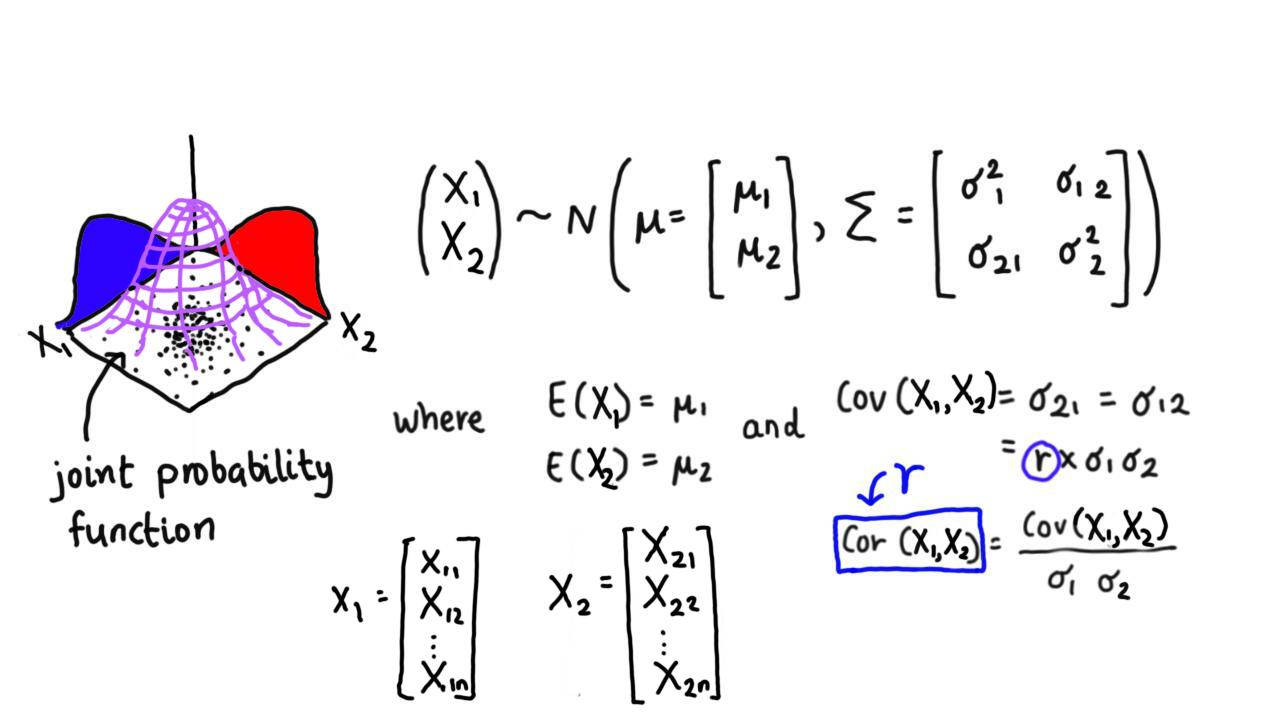 X₁
X₂
joint probability
function
(X₁
X₂) ~ N(μ = [μ₁
μ₂], Σ = [σ²₁ σ₁₂
σ₂₁ σ²₂])
where
E(X₁) = μ₁
E(X₂) = μ₂
and
Cov(X₁,X₂) = σ₂₁ = σ₁₂
= r × σ₁ σ₂
r
Cor (X₁,X₂) = Cov(X₁,X₂)
σ₁ σ₂
X₁ = [X₁₁
X₁₂
⋮
X₁ₙ]
X₂ = [X₂₁
X₂₂
⋮
X₂ₙ]